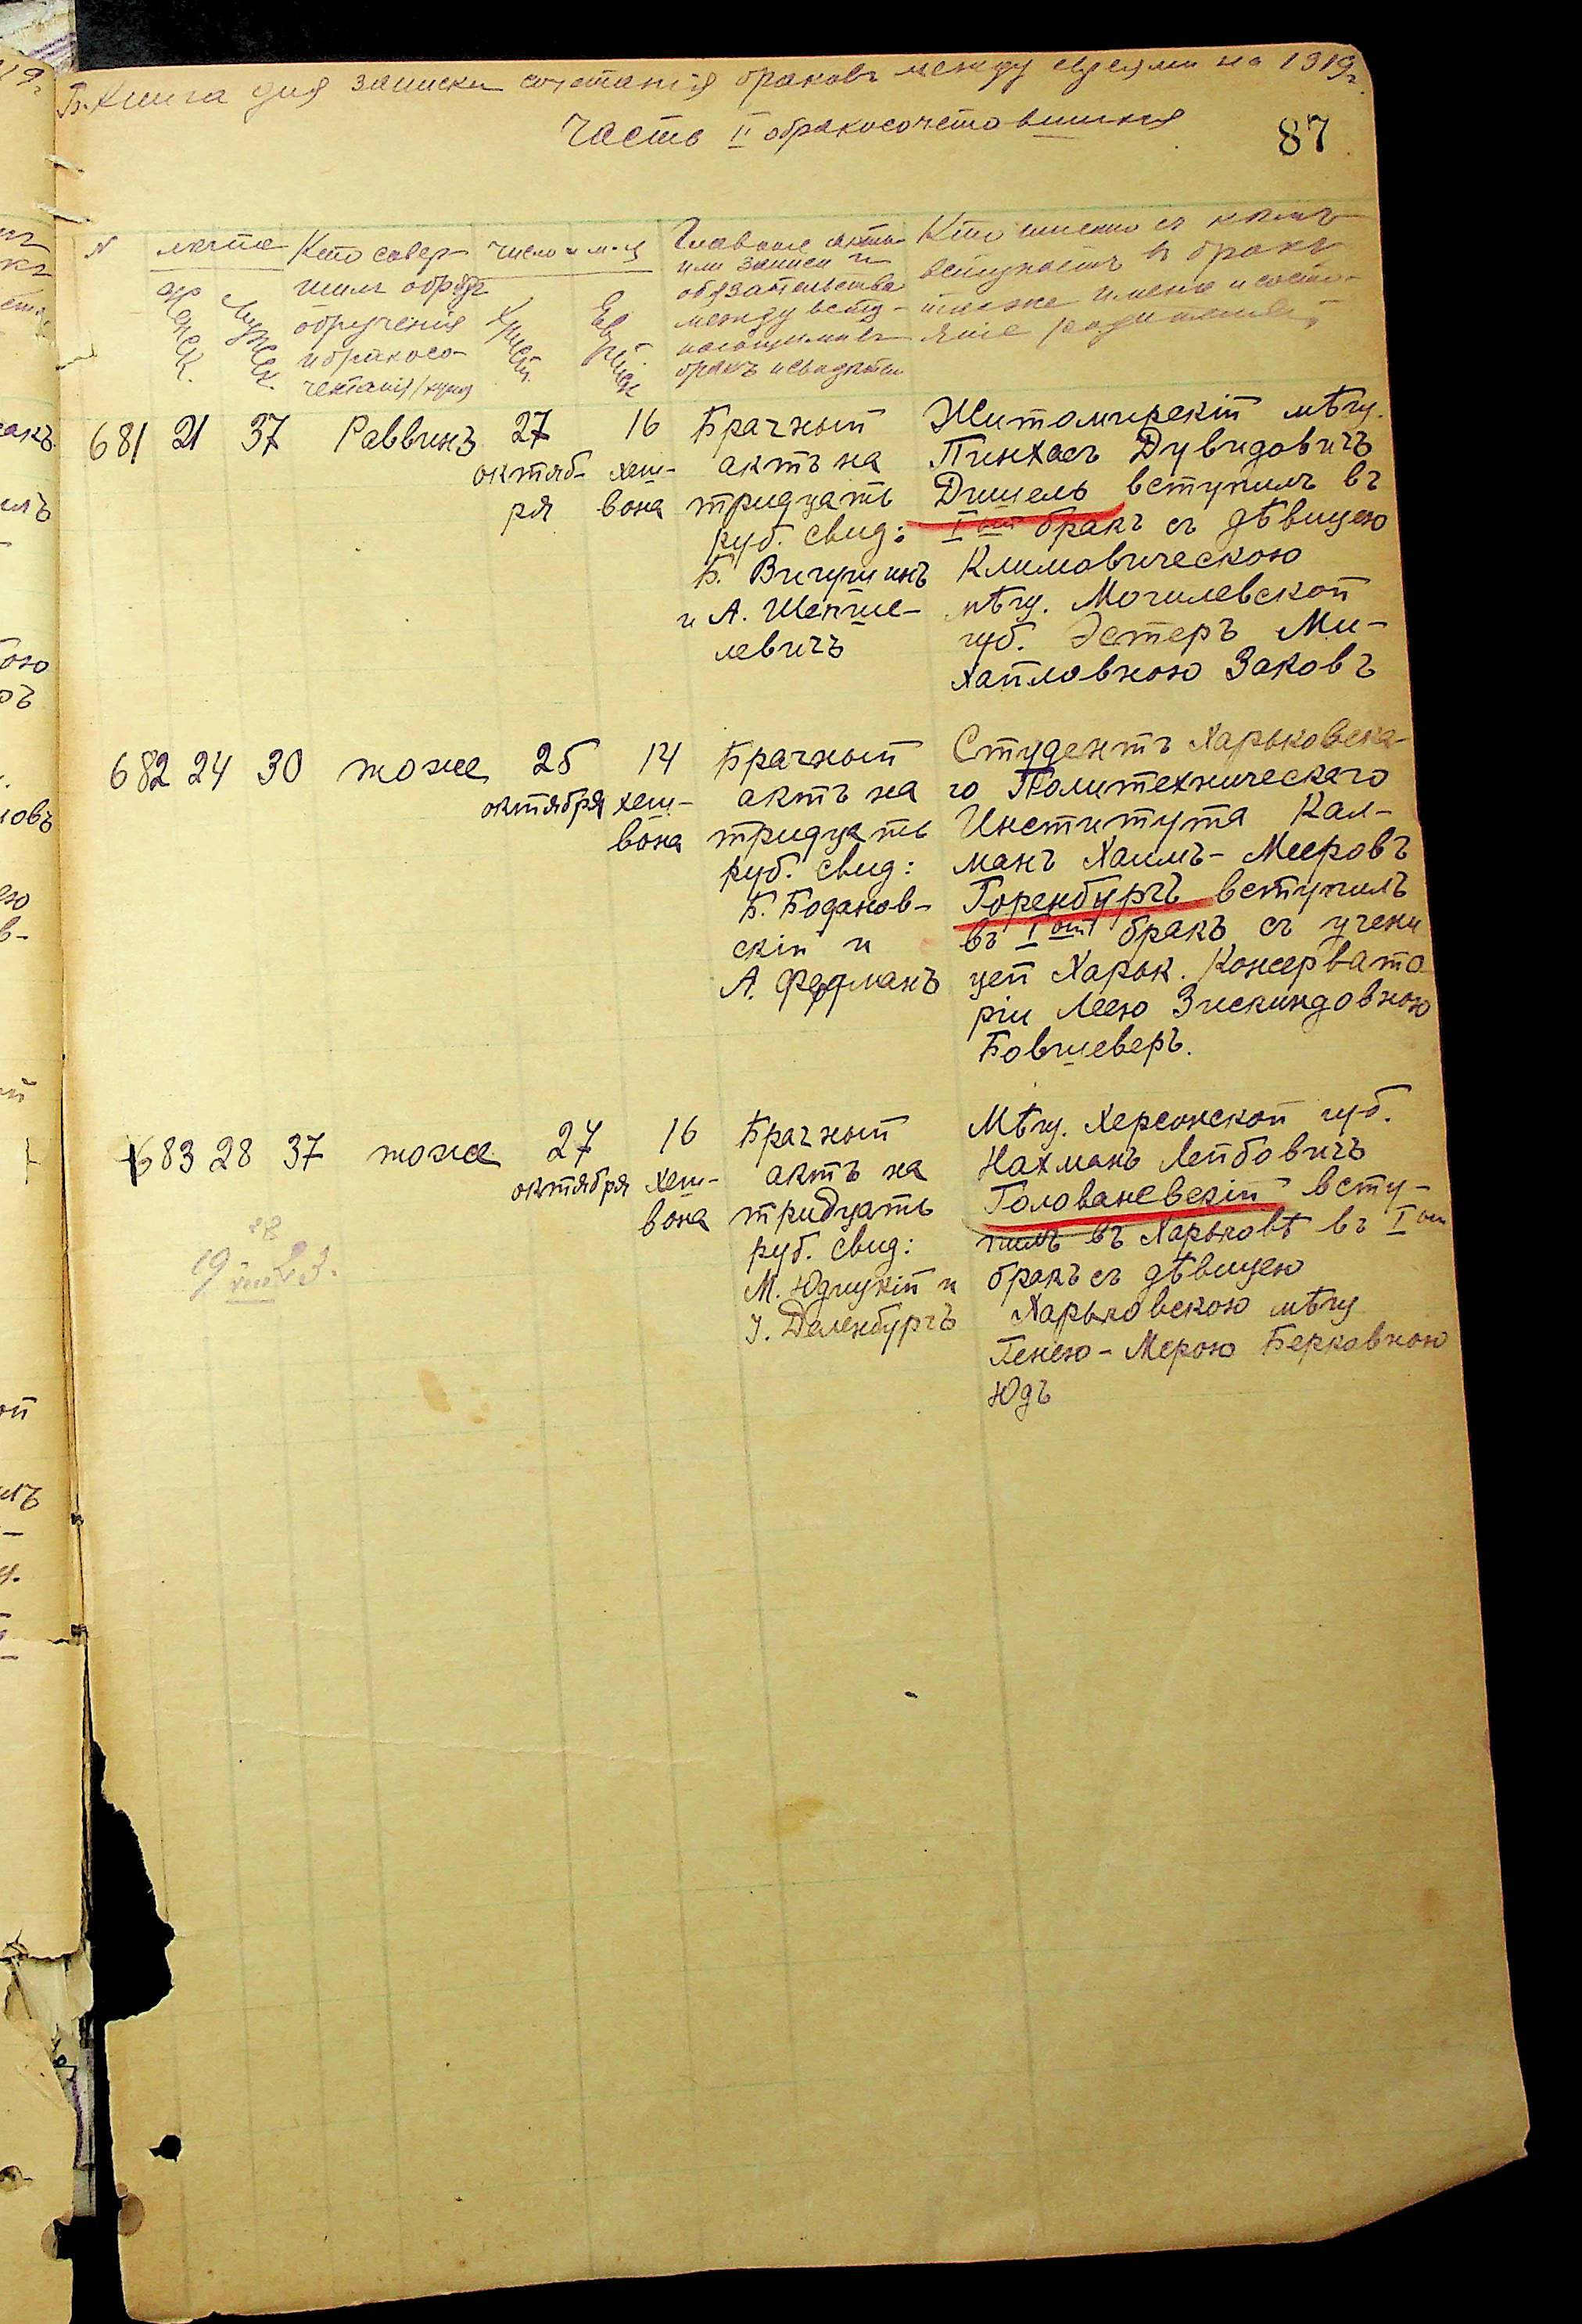 Б. Книга для записки сочетанія браковъ между евреями на 1919 г.
Часть II о бракосочетавшихся
87
N
лѣта
Женск.
Мужск.
Кто совер-
шилъ обрядъ
обрученія
и бракосо-
четанія
число и м-ц
Христ.
Еврейск.
Главные акты
или записи и
обязательства
между всту-
пающими въ
бракъ и свидѣтели
Кто именно съ кѣмъ
вступаетъ въ бракъ
также имена и состо-
яніе родителей
681 21 37 Раввинъ 27 октяб-ря 16 хеш-вона
Брачный
актъ на
тридцать
руб. свид:
Б. Вигушинъ
и А. Шепше-
левичъ
Житомирскій мѣщ.
Пинхасъ Дувидовичъ
Дишель вступилъ въ
Iый бракъ съ дѣвицею
Климовическою
мѣщ. Могилевской
губ. Эстеръ Ми-
хайловною Заковъ
682 24 30 тоже 25 октября 14 хеш-вона
Брачный
актъ на
тридцать
руб. свид:
Б. Боданов-
скій и
А. Фрдманъ
Студентъ Харьковска-
го Политехническаго
Института Кал-
манъ Хаимъ-Мееровъ
Горенбургъ вступилъ
въ Iый бракъ съ учени
цей Харьк. Консервато
ріи Леею Зискиндовною
Бовшеверъ.
683 28 37 тоже 27 октября 16 хеш-вона
Брачный
актъ на
тридцать
руб. свид:
М. Юдицкій и
І. Деленбургъ
Мѣщ. Херсонской губ.
Нахманъ Лейбовичъ
Голованевскій всту-
пилъ въ Харьковѣ въ Iый
бракъ съ дѣвицею
Харьковскою мѣщ
Генею-Мерою Берковною
Юдъ